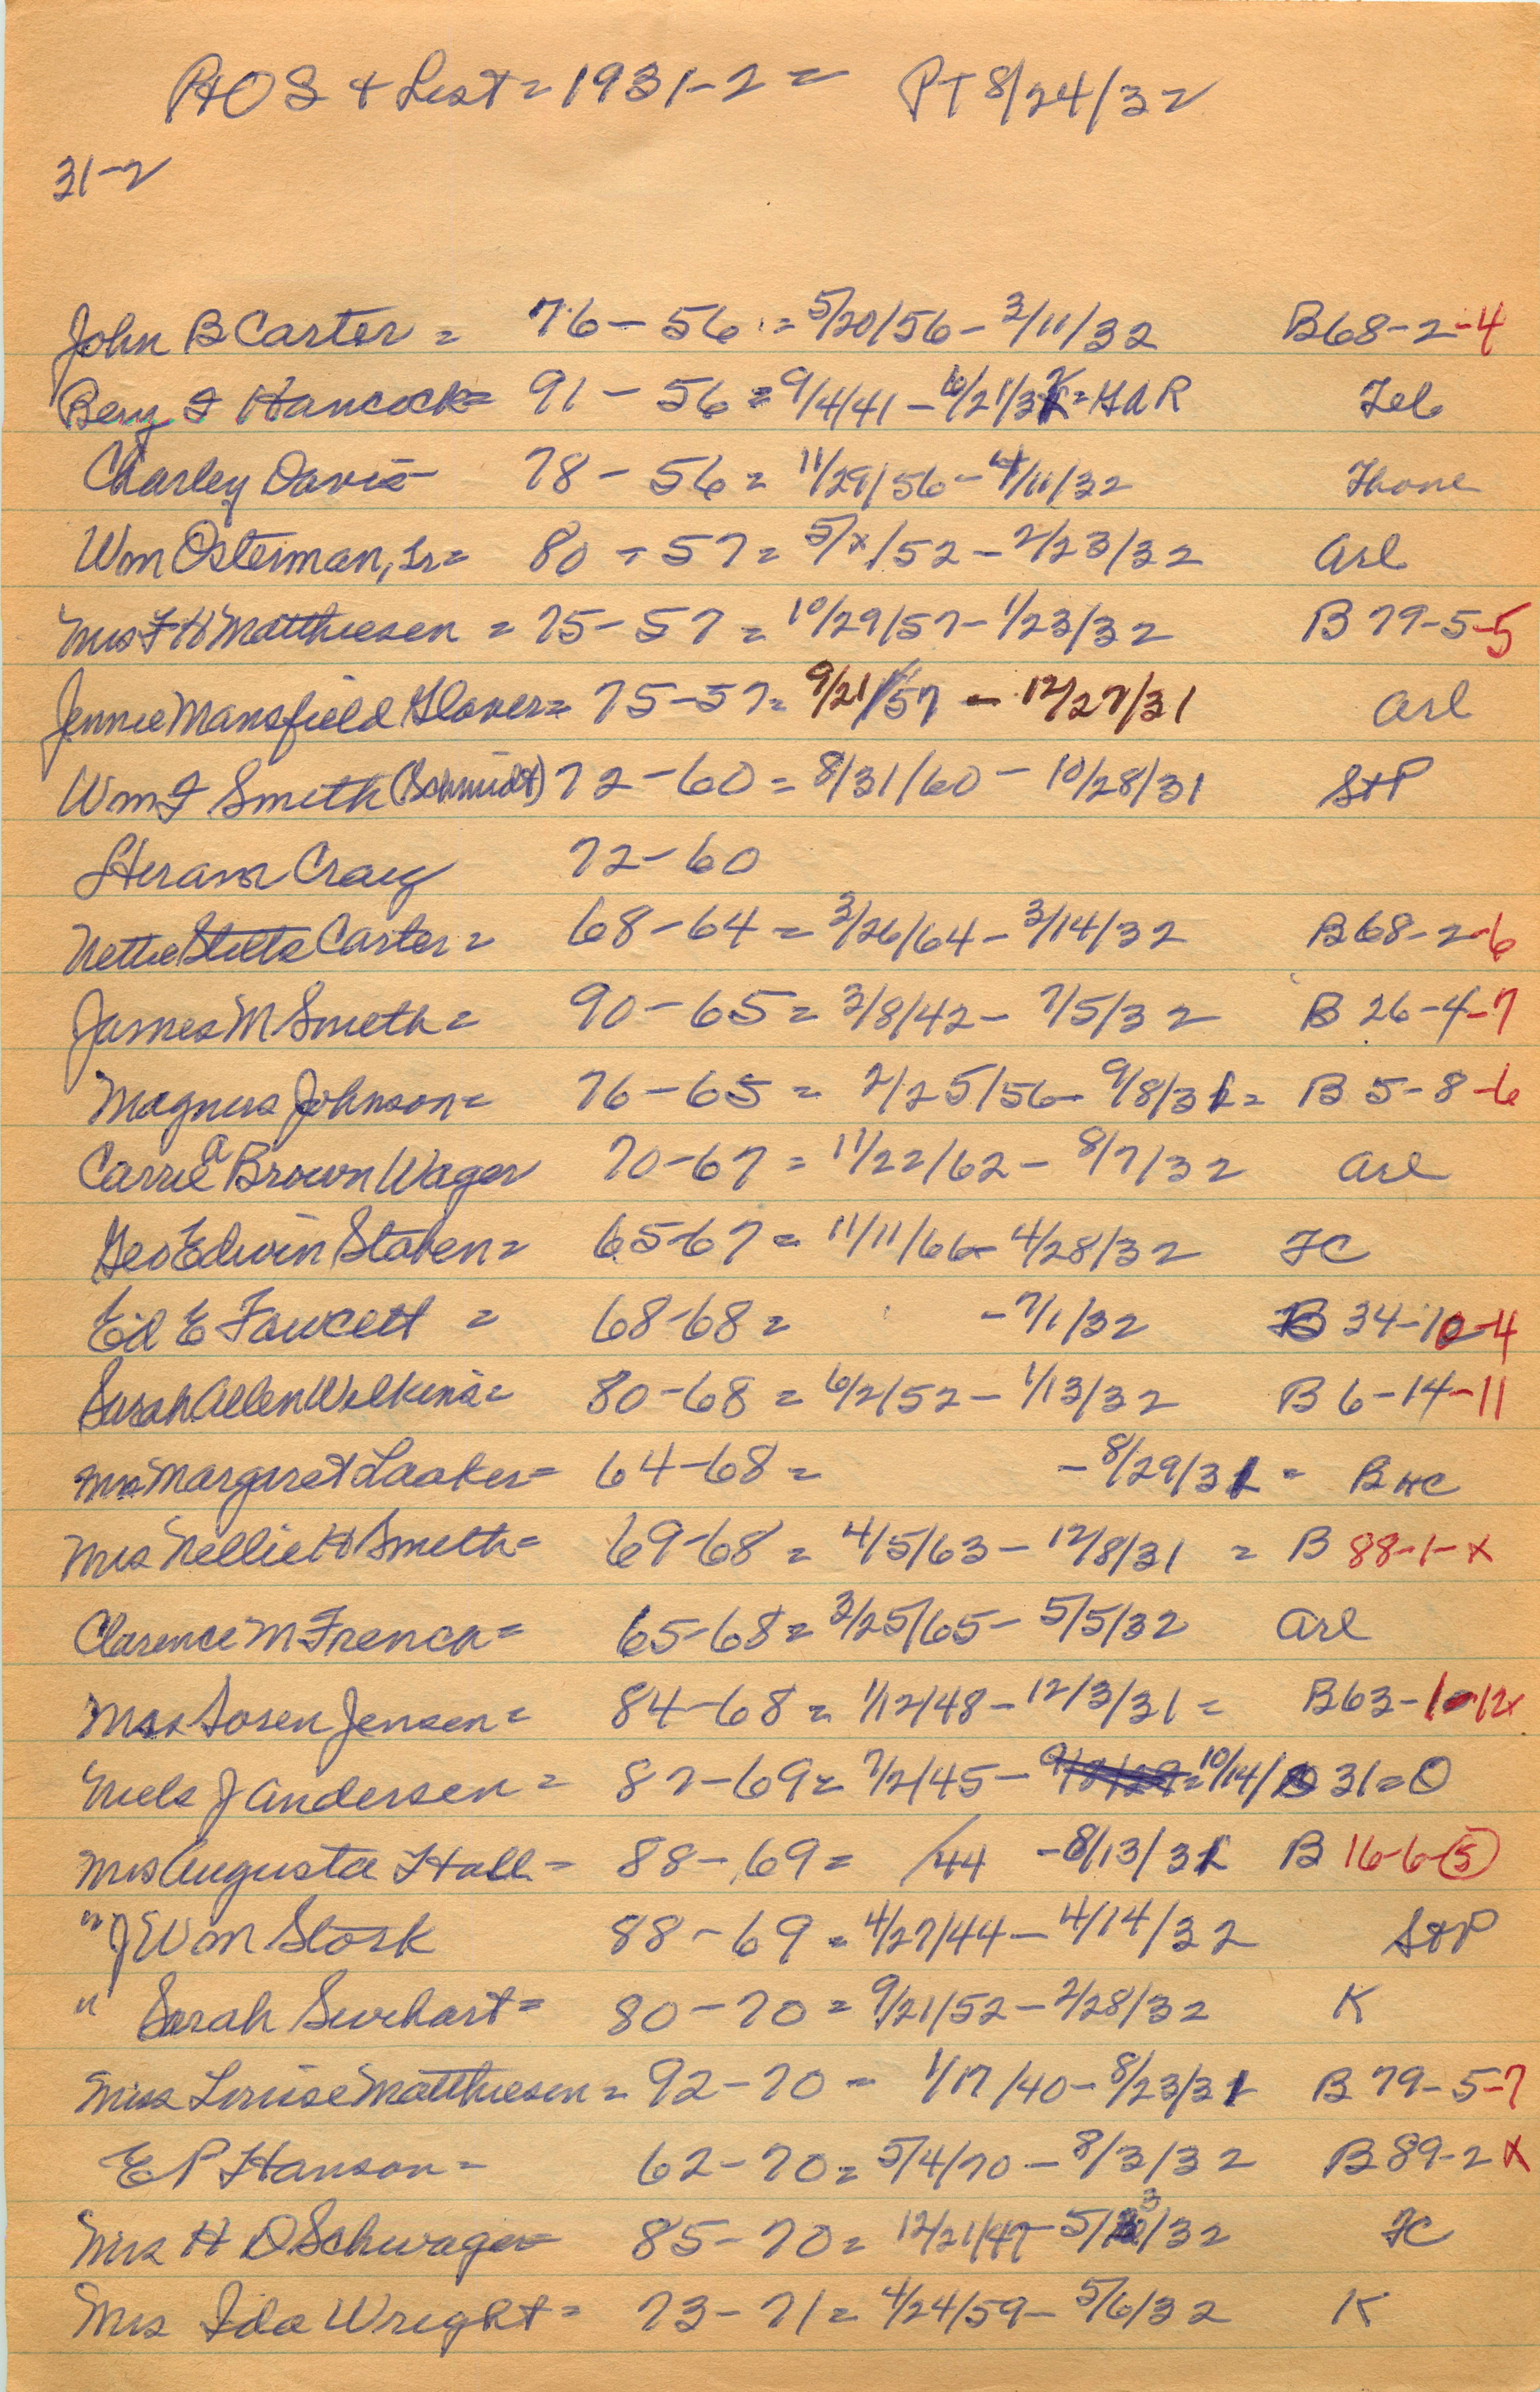 P+O S + List = 1931-2 = PT 8/24/32
31-2
John B Carter = 76 - 56 = 5/20/56 - 3/11/32 B68-2-4
Benj F Hancock = 91 - 56 = 9/4/41 - 6/21/32 = GAR Tel
Charley Davis - 78 - 56 = 11/29/56 - 4/11/32 Thone
Wm Osterman, Sr = 80 - 57 = 5/x/52 - 2/23/32 Arl
Mrs F H Matthiesen = 75 - 57 = 10/29/57 - 1/23/32 B 79-5-5
Jennie Mansfield Glover = 75-57 = 9/21/57 - 12/27/31 Arl
Wm F Smith (Schmidt) 72-60 = 8/31/60 - 10/28/31 StP
Hiram Craig 72-60
Nettie Stilts Carter = 68-64 = 3/26/64 - 3/14/32 B68-2-6
James M Smith = 90-65 = 3/8/42 - 7/5/32 B 26-4-7
Magnus Johnson = 76-65 = 2/25/56 - 9/8/31 = B 5-8-6
Carrie A Brown Wager 70-67 = 11/22/62 - 8/7/32 Arl
Geo Edwin Staben = 65-67 = 11/11/66 - 4/28/32 FC
Ed E Fawcett = 68-68 = - 7/1/32 B 34-10-4
Sarah Allen Wilkins = 80-68 = 6/2/52 - 1/13/32 B 6-14-11
Mrs Margaret Laaker = 64-68 = - 8/29/31 = B HC
Mrs Nellie H Smith = 69-68 = 4/5/63 - 12/8/31 = B 88-1-x
Clarence M French = 65-68 = 3/25/65 - 5/5/32 Arl
Mrs Soren Jensen = 84-68 = 1/12/48 - 12/3/31 = B63-1-12x
Niels J Andersen = 87-69 = 7/2/45 - = 10/14/31 = O
Mrs Augusta Hall = 88-69 = /44 - 8/13/31 B 16-6-5
" J Wm Stork 88-69 = 4/27/44 - 4/14/32 StP
" Sarah Swihart = 80-70 = 9/21/52 - 2/28/32 K
Miss Louise Matthiesen = 92-70 - 1/17/40 - 8/23/31 B 79-5-7
E P Hanson = 62-70 = 5/4/70 - 8/3/32 B 89-2 x
Mrs H D Schwager = 85-70 = 12/21/47 - 5/ /32 FC
Mrs Ida Wright = 73-71 = 4/24/59 - 5/6/32 K